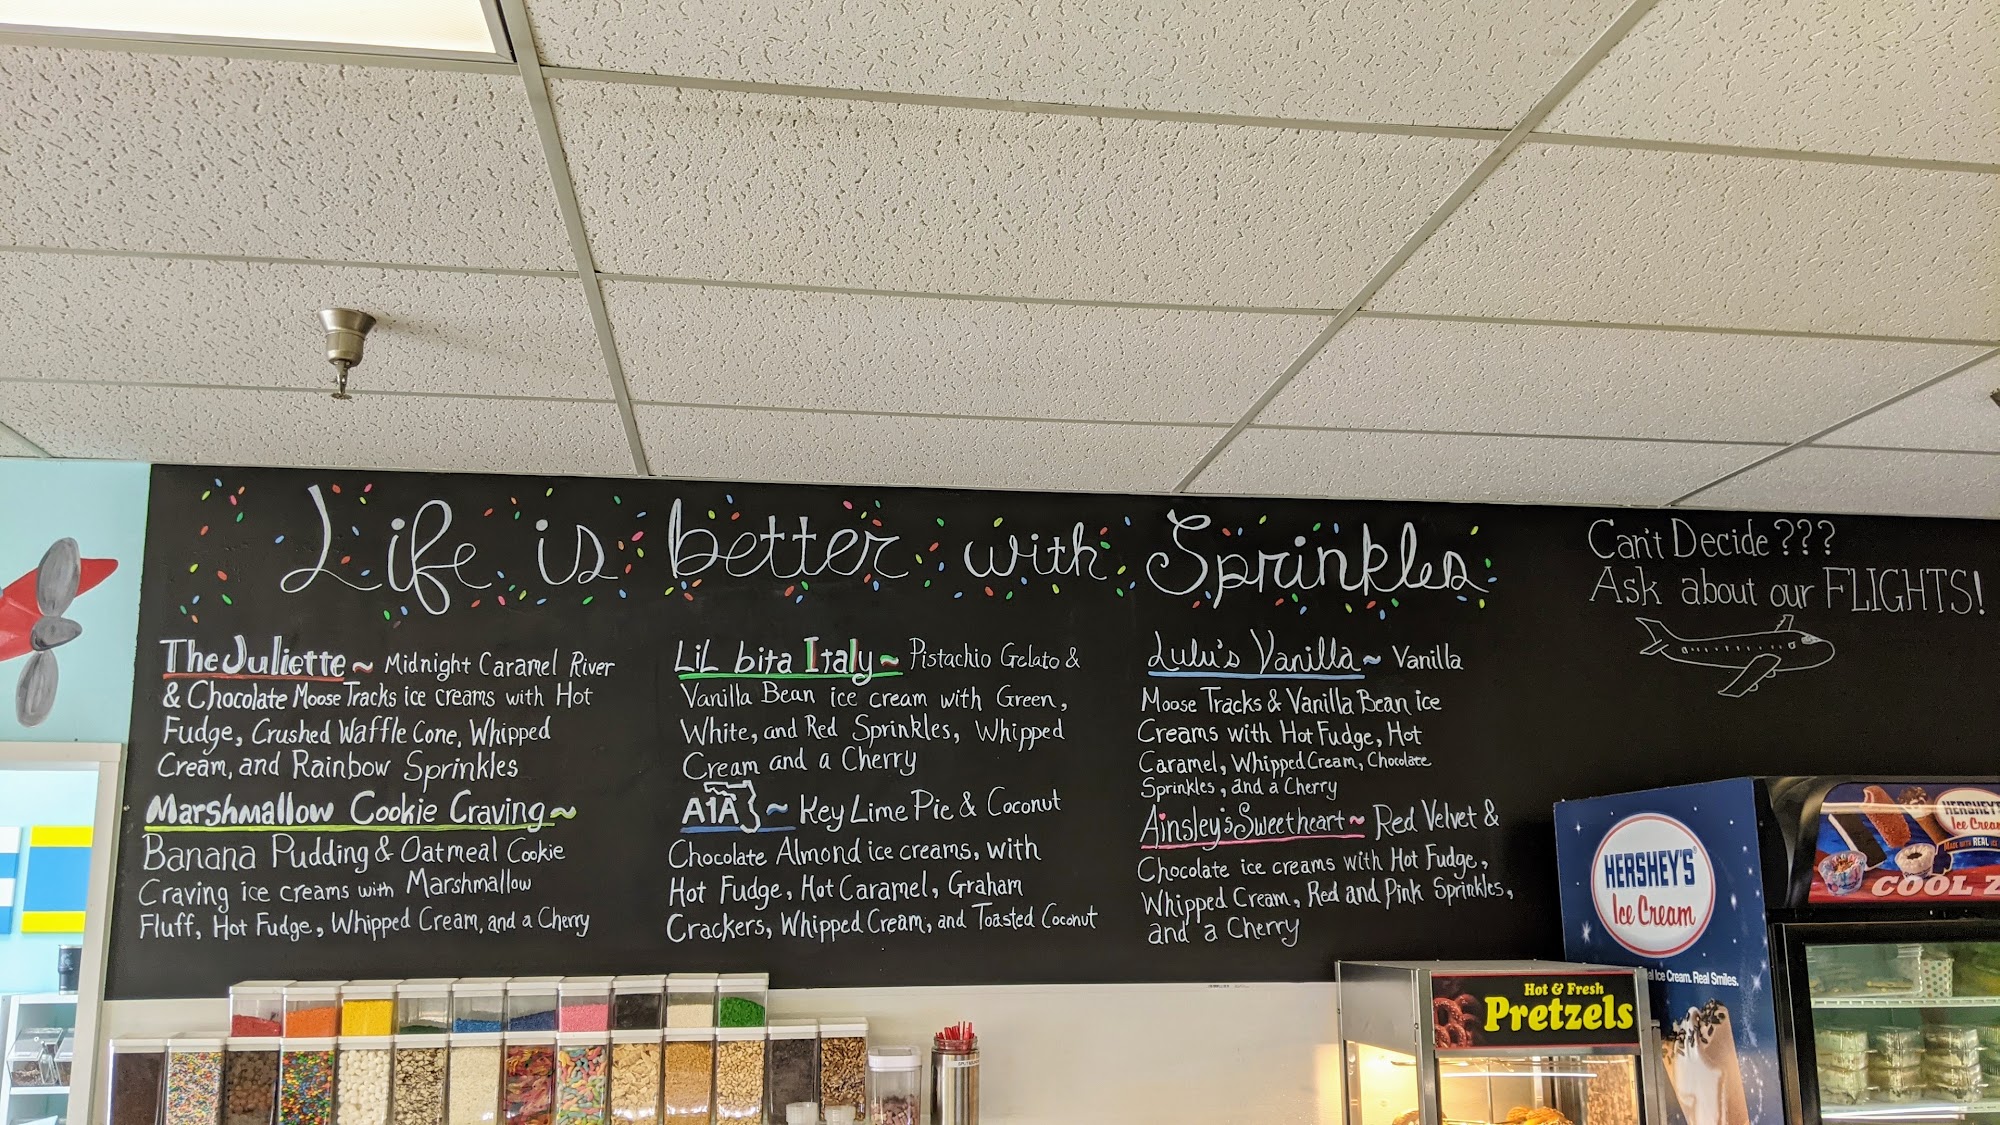 Life is better with Sprinkles
Can't Decide???
Ask about our FLIGHTS!
The Juliette ~ Midnight Caramel River
& Chocolate Moose Tracks ice creams with Hot
Fudge, Crushed Waffle Cone, Whipped
Cream, and Rainbow Sprinkles
Marshmallow Cookie Craving ~
Banana Pudding & Oatmeal Cookie
Craving ice creams with Marshmallow
Fluff, Hot Fudge, Whipped Cream, and a Cherry
LiL bita Italy ~ Pistachio Gelato &
Vanilla Bean ice cream with Green,
White, and Red Sprinkles, Whipped
Cream and a Cherry
A1A ~ Key Lime Pie & Coconut
Chocolate Almond ice creams, with
Hot Fudge, Hot Caramel, Graham
Crackers, Whipped Cream, and Toasted Coconut
Lulu's Vanilla ~ Vanilla
Moose Tracks & Vanilla Bean ice
Creams with Hot Fudge, Hot
Caramel, Whipped Cream, Chocolate
Sprinkles, and a Cherry
Ainsley's Sweetheart ~ Red Velvet &
Chocolate ice creams with Hot Fudge,
Whipped Cream, Red and Pink Sprinkles,
and a Cherry
HERSHEY'S
Ice Cream
Ice Cream. Real Smiles.
HERSHEY'S
Ice Cream
MADE WITH REAL
COOL
Hot & Fresh
Pretzels